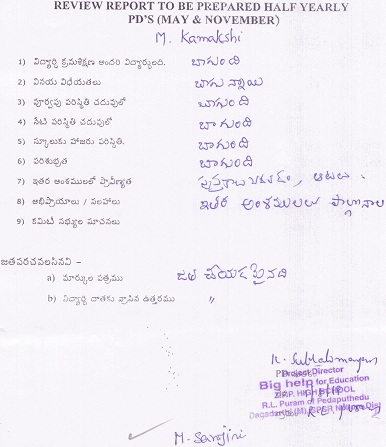 REVIEW REPORT TO BE PREPARED HALF YEARLY
PD'S (MAY & NOVEMBER)
M. Kamakshi
1) విద్యార్థి క్రమశిక్షణ అందరి విద్యార్థులది. బాగుంది
2) వినయ విధేయతలు బాగున్నాయి
3) పూర్వపు పరిస్థితి చదువులో బాగుంది
4) నేటి పరిస్థితి చదువులో బాగుంది
5) స్కూలుకు హాజరు పరిస్థితి. బాగుంది
6) పరిశుభ్రత బాగుంది
7) ఇతర అంశములలో ప్రావీణ్యత ఆటలు.
8) అభిప్రాయాలు / సలహాలు ఇతర అంశములలు
9) కమిటీ సభ్యుల సూచనలు
జతపరచవలసినవి –
a) మార్కుల పత్రము జత చేయడమైనది
b) విద్యార్థి దాతకు వ్రాసిన ఉత్తరము "
K. Subrahmanyam
Project Director
Big help for Education
Z.P.P. HIGH SCHOOL
R.L. Puram of Pedaputhedu
M. Sarojini